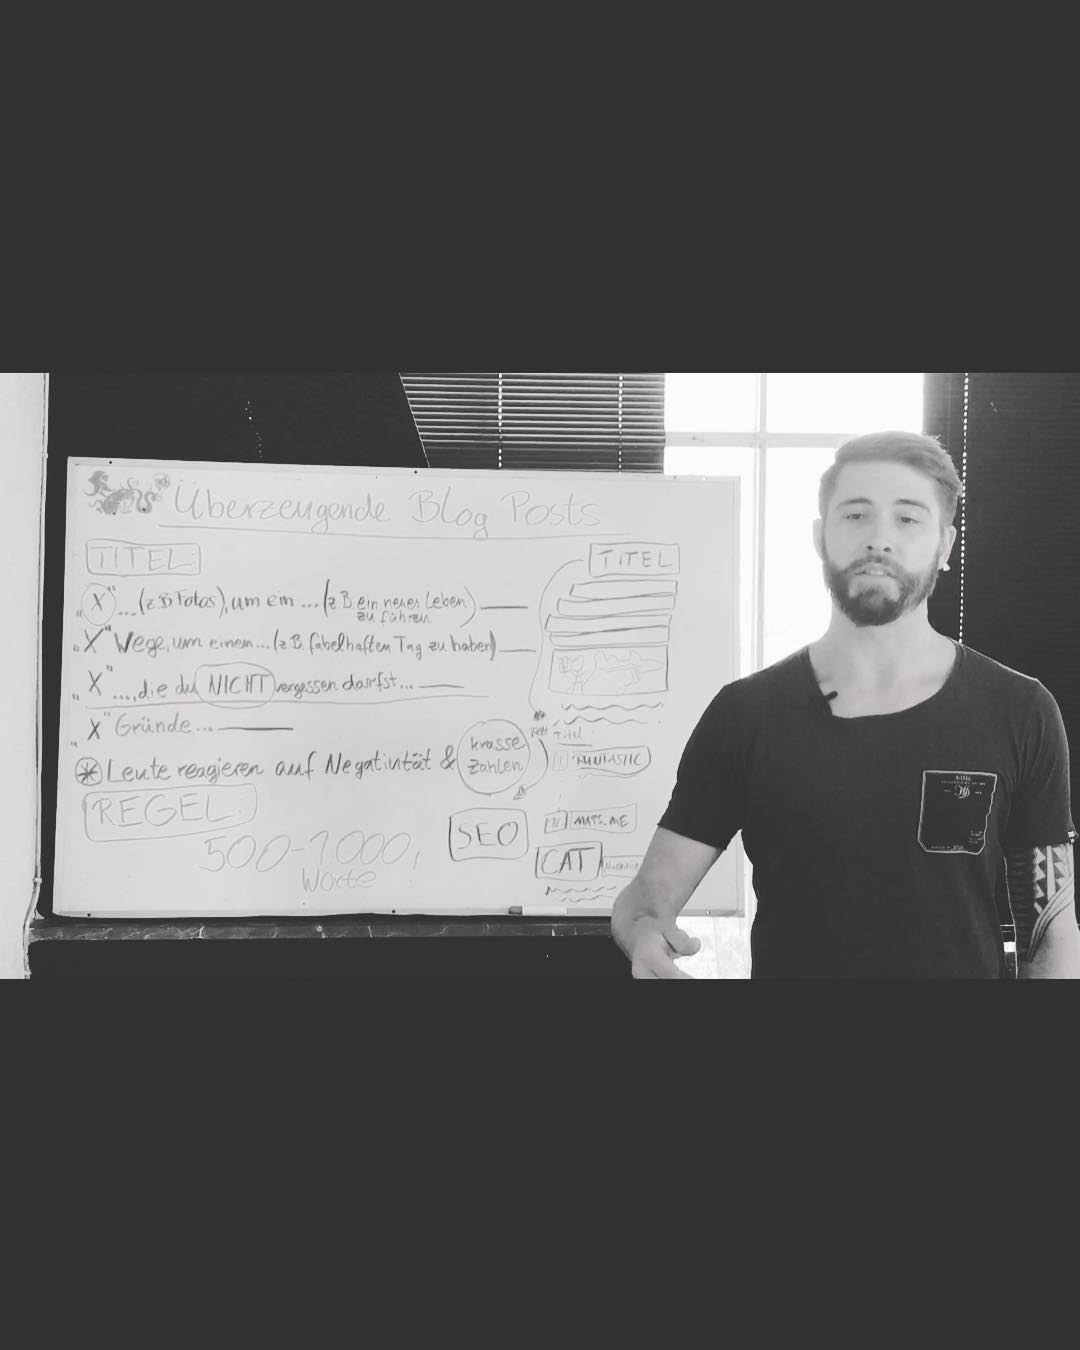 Überzeugende Blog Posts
TITEL:
"X" ... (z.B. Fotos), um ein ... (z B ein neues Leben zu führen)
"X" Wege, um einem ... (z.B. fabelhaften Tag zu haben)
"X" ...., die du NICHT vergessen darfst ...
"X" Gründe ...
* Leute reagieren auf Negativität & krasse Zahlen
REGEL:
500-1000,
Worte
SEO
TITEL
Titel:
CAT